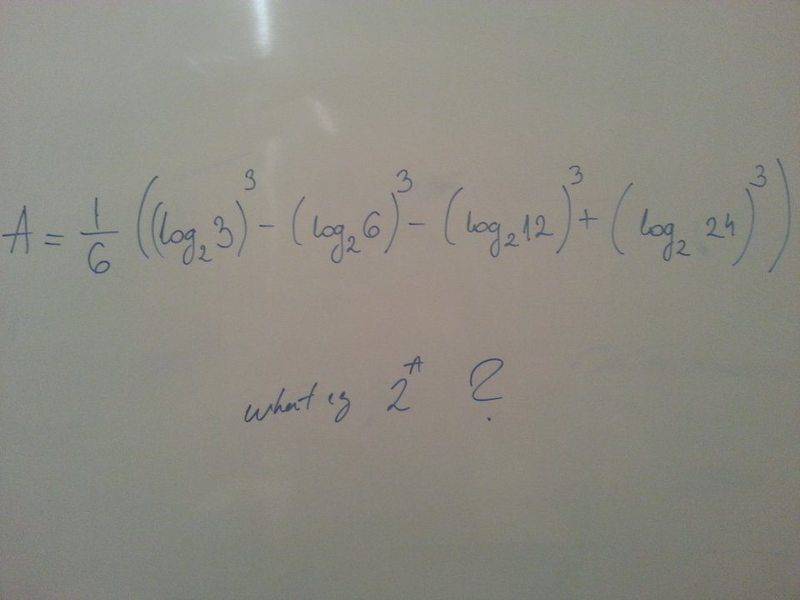 A = 1/6 ((log₂3)³ - (log₂6)³ - (log₂12)³ + (log₂ 24)³)
what is 2^A ?